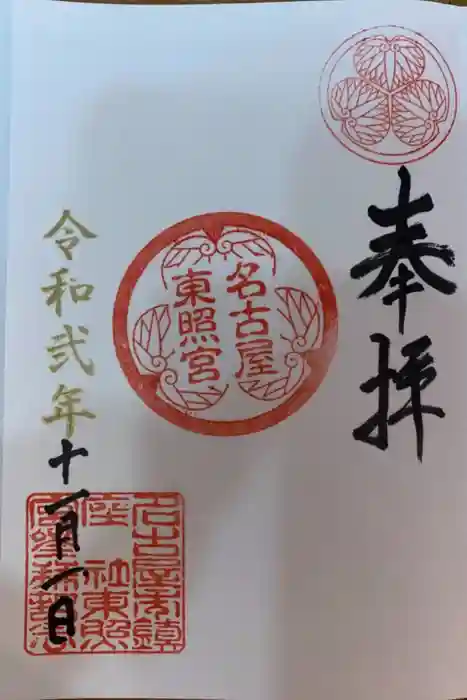 奉拝
名古屋
東照宮
令和弐年
十一月一日